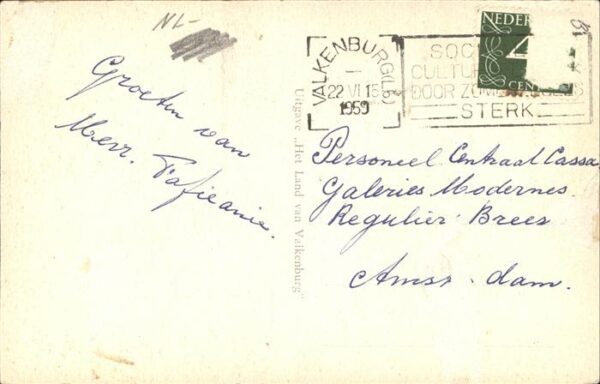 NL-
VALKENBURG (LB)
22 VI 15
1959
SOC
CULTU
DOOR ZOM
STERK
NEDER
4
CEN
Groeten van
Mevr.
Uitgave "Het Land van Valkenburg"
Personeel Centraal Cassa
Galeries Modernes.
Regulier Brees
Amst-dam.